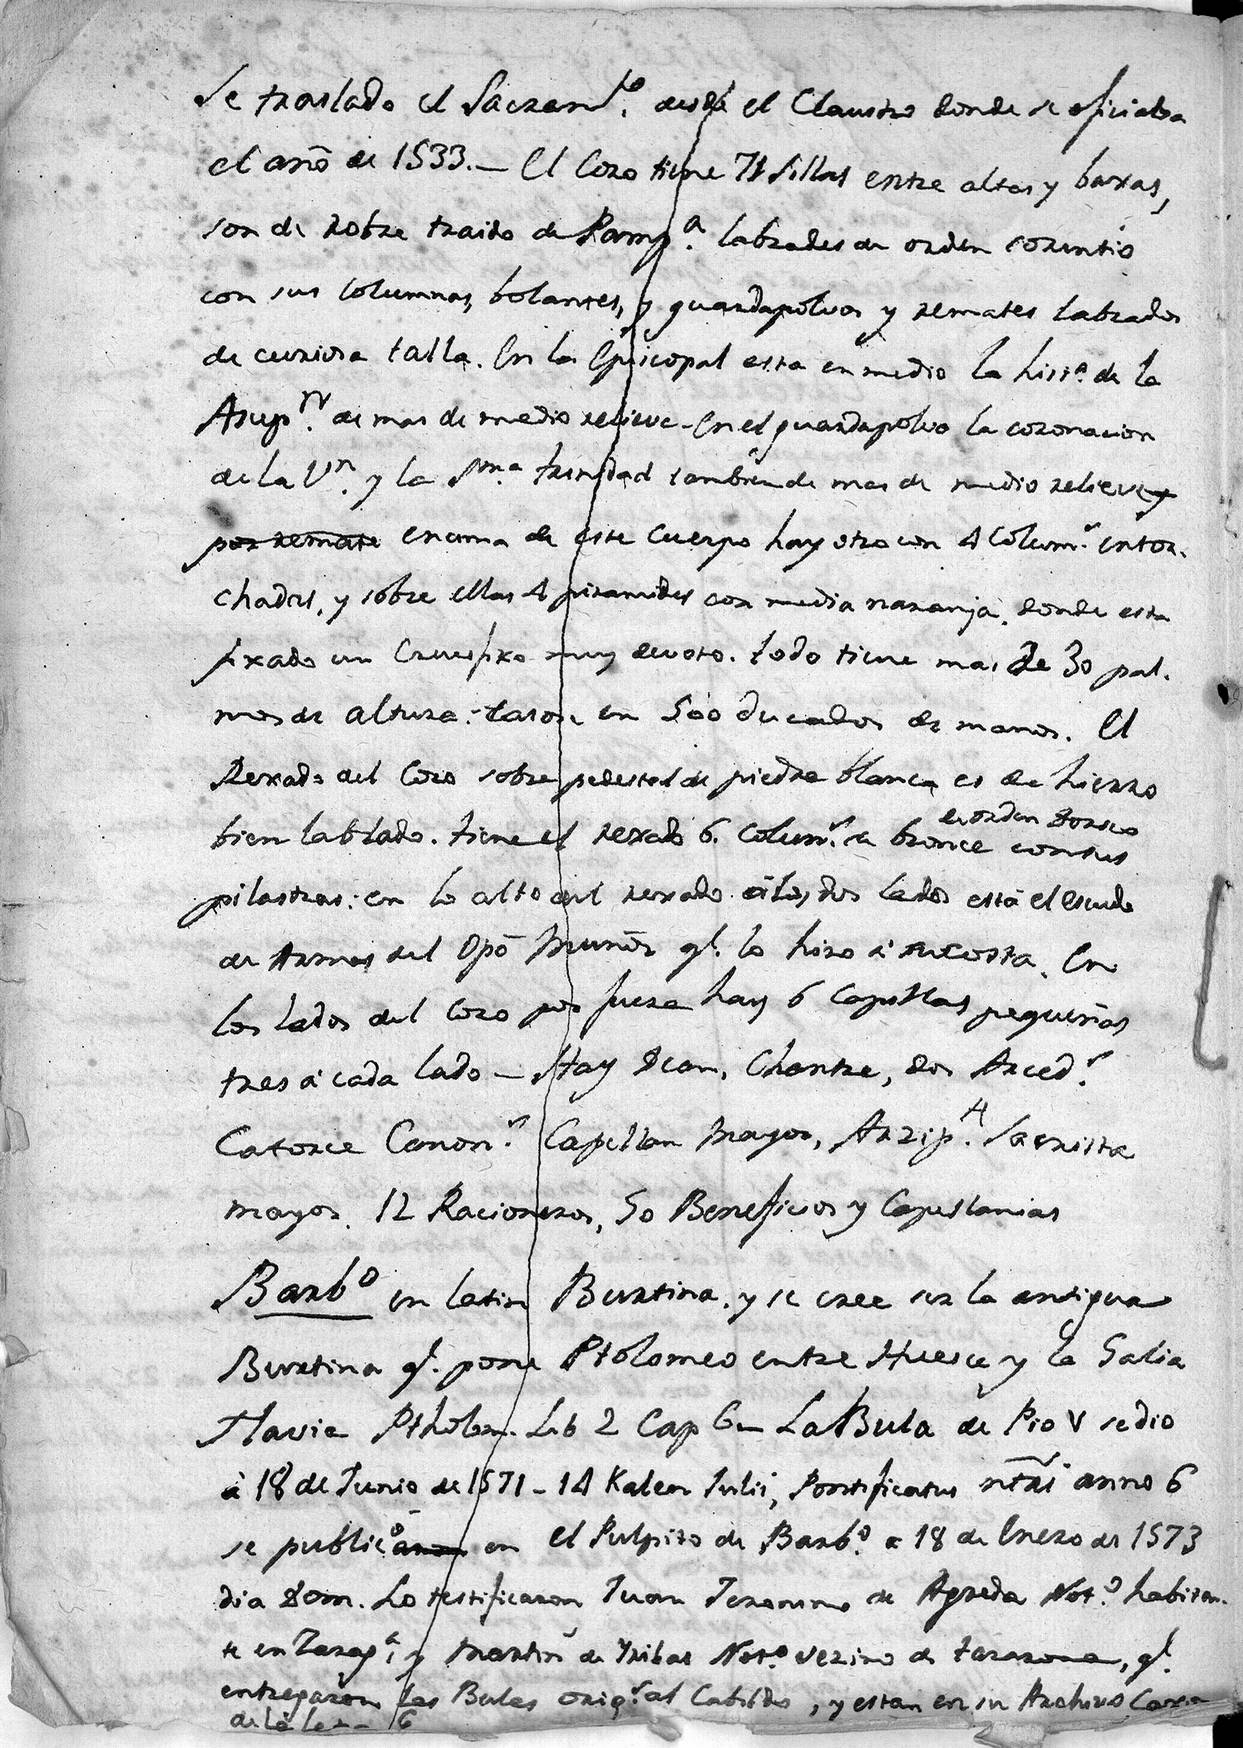 Se traslado el Sacram.to desde el Claustro donde se oficiaba
el año de 1533.— El Coro tiene 71 sillas entre altas y baxas,
son de robre traido de Pamp.a labrades de orden corintio
con sus columnas, bolantes, y guardapolvos y remates labrados
de curiosa talla. En la Episcopal esta en medio la hist.a de la
Asup.n de mas de medio relieve - En el guardapolvo la coronacion
de la V.n y la S.ma trinidad tambien de mas de medio relieve y
por remate encima de este cuerpo hay otro con 4 Colum.s entor-
chadas, y sobre ellas 4 piramides con media naranja, donde esta
fixado un Crucifixo muy devoto. todo tiene mas de 30 pal-
mos de altura: tasose en 500 ducados de manos. El
Rexado del Coro sobre pedestal de piedra blanca es de hierro
bien lablado. tiene el rexado 6. Colum.s de bronce de orden dorico con sus
pilastras: en lo alto del rexado á los dos lados está el escudo
de Armas del Opô Muñoz q.e lo hizo á su costa. En
los lados del Coro por fuera hay 6 Capillas pequeñas
tres á cada lado — Hay Dean, Chantre, dos Arced.s
Catorce Canon.s Capellan Mayor, Arzip.te Sacrista
mayor. 12 Racioneros, 50 Beneficios y Capellanias
Barb.o en latin Burtina, y se cree ser la antigua
Burtina q.e pone Ptolomeo entre Huesca y la Galia
Flavia Ptholom. Lib 2 Cap 6 — La Bula de Pio V se dio
á 18 de Junio de 1571 - 14 Kalen Julii, Pontificatus ntri anno 6
se publicó en el Pulpito de Barb.o a 18 de Enero de 1573
dia dom. Lo testificaron Juan Jeronimo de Agreda Not.o habitan-
te en Zarag.a y Martin de Tribas Not.o vezino de tarazona, q.e
entregaron las Bulas orig.s al Cabildo, y estan en su Archivo Caxa
de la 6